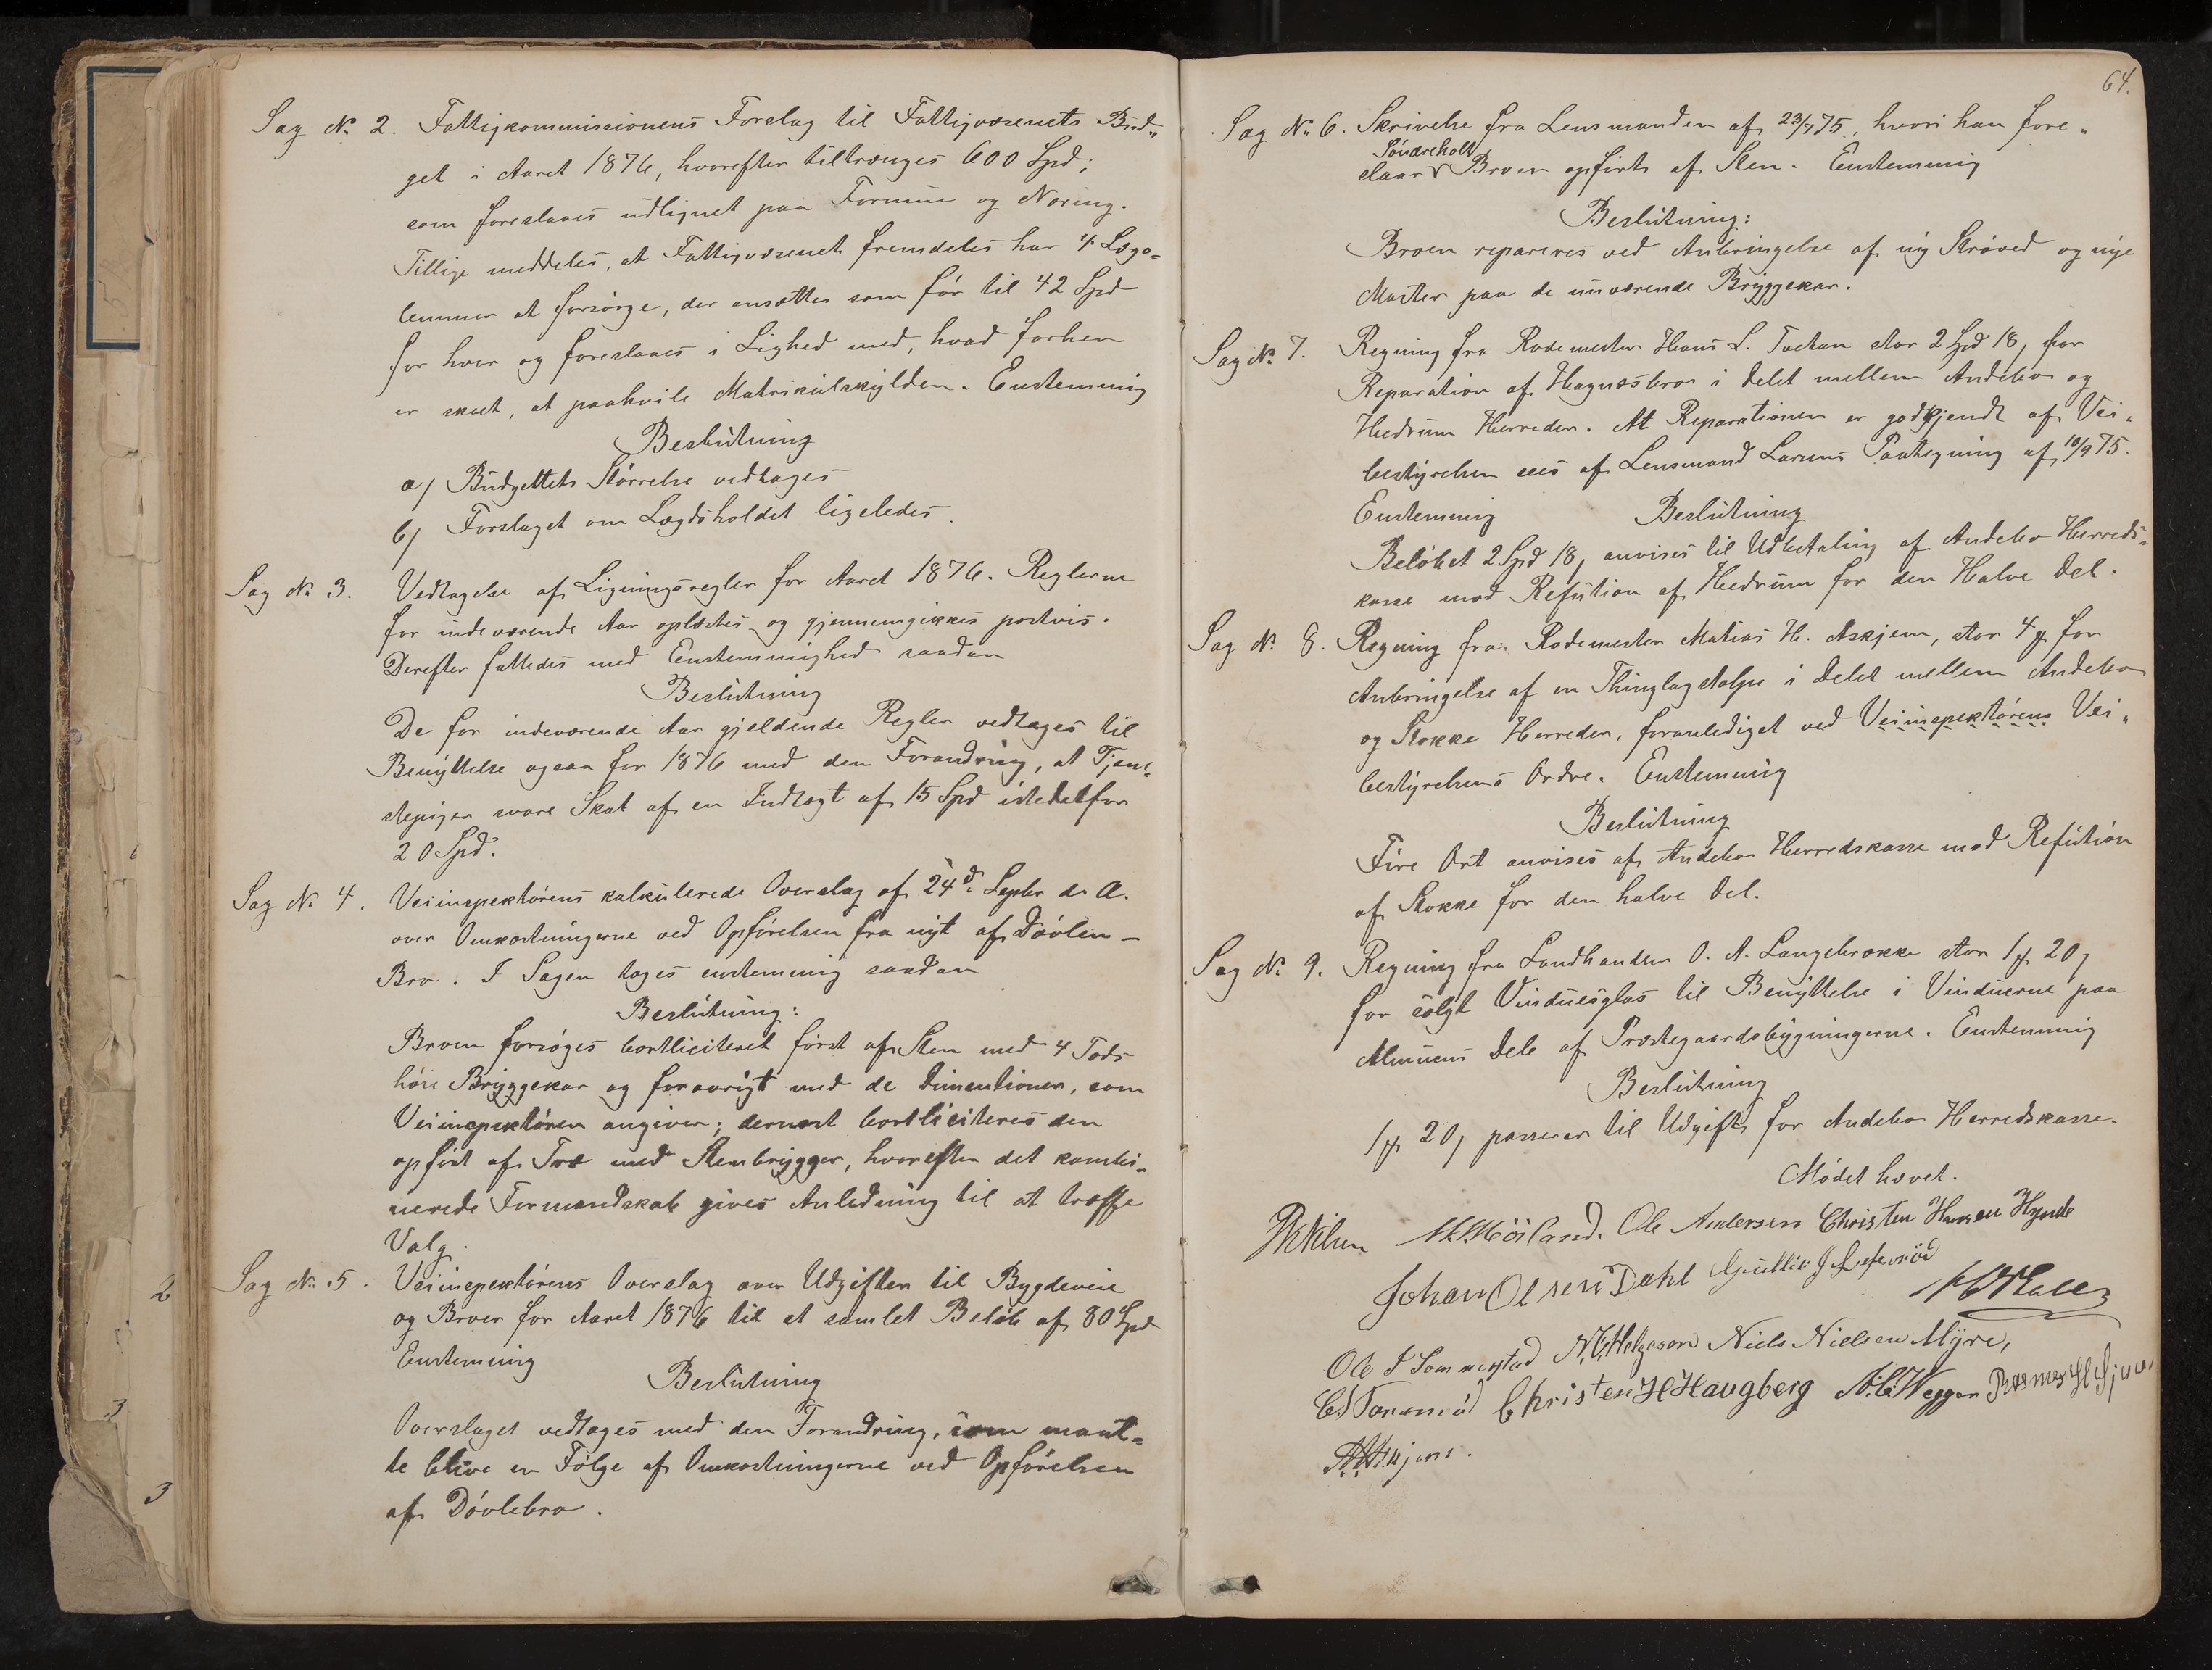 Sag No 2. Fattigkommissionens Forslag til Fattigvæsenets Bud-
get i Aaret 1876, hvorefter tiltrænges 600 Spd,
som foreslaaes udlignet paa Formue og Næring.
Tillige meddeles, at Fattigvæsenet fremdeles har 4 Lægs-
lemmer at forsørge, der ansættes som før til 42 Spd
for hver og foreslaaes i Lighed med, hvad forhen
er skeet, at paahvile Matrikulskylden. Enstemmig
Beslutning
a) Budgettets Størrelse vedtages
b) Forslaget om Lægdsholdet ligeledes.
Sag No 3. Vedtagelse af Ligningsregler for Aaret 1876. Reglerne
for indeværende Aar oplæstes og gjennemgikkes postvis.
Derefter fattedes med Enstemmighed saadan
Beslutning
De for indeværende Aar gjeldende Regler vedtages til
Benyttelse ogsaa for 1876 med den Forandring, at Tjene-
stepiger svare Skat af en Indtægt af 15 Spd istedetfor
20 Spd.
Sag No 4. Veiinspektørens kalkulerede Overslag af 24d Septbr d. A.
over Omkostningerne ved Opførelsen fra nyt af Døvlen-
Bro. I Sagen toges enstemmig saadan
Beslutning:
Broen forsøges bortliciteret først af Sten med 4 Fods
høie Bryggekar og forøvrigt med de Dimentioner, som
Veiinspektøren angiver; dernæst bortliciteres den
opført af Træ med Stenbrygger, hvorefter det kombi-
nerede Formandskab gives Anledning til at træffe
Valg.
Sag No 5. Veiinspektørens Overslag over Udgifter til Bygdeveie
og Broer for Aaret 1876 til et samlet Beløb af 80 Spd
Enstemmig
Beslutning
Overslaget vedtages med den Forandring, som maat-
te blive en Følge af Omkostningerne ved Opførelsen
af Døvlebro.
64.
Sag No 6. Skrivelse fra Lensmanden af 23/7 75, hvori han fore-
Sønderholt
slaar Broen opført af Sten. Enstemmig
Beslutning:
Broen repareres ved Anbringelse af ny Strøved og nye
Master paa de nuværende Bryggekar.
Sag No 7. Regning fra Rodemester Hans L. stor 2 Spd 18, for
Reparation af Hagnæsbro i Delet mellem Andebo og
Hedrum Herreder. At Reparationen er godkjendt af Vei-
bestyrelsen sees af Lensmand Larsens Paategning af 10/9 75.
Enstemmig Beslutning
Beløbet 2 Spd 18, anvises til Udbetaling af Andebo Herreds-
kasse mod Refution af Hedrum for den Halve Del.
Sag No 8. Regning fra Rodemester Matias H. Askjem, stor 4 for
Anbringelse af en Thinglagstolpe i Delet mellem Andebo
og Stokke Herreder, foranlediget ved Veiinspektørens Vei-
bestyrelsens Ordre. Enstemmig
Beslutning
Fire Ort anvises af Andebo Herredskasse mod Refution
af Stokke for den halve Del.
Sag No 9. Regning fra Landhandler O. A. Langebrække stor 1 20,
for solgt Vinduesglas til Benyttelse i Vinduerne paa
Almuens Dele af Præstegaardsbygningerne. Enstemmig
Beslutning
1 20, passerer til Udgift for Andebo Herredskasse.
Mødet hævet.
Ole Andersen Christen Hansen Hynde
Johan Olsen Dahl Gullik
Ole Sommerstad Helgesen Niels Nielsen Myre,
Christen H Haugberg